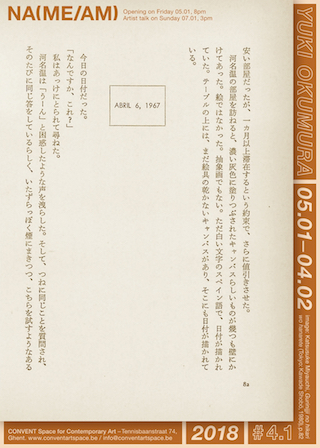 NA(ME/AM)
Opening on Friday 05.01, 8pm
Artist talk on Sunday 07.01, 3pm
YUKI OKUMURA 05.01–04.02
安い部屋だったが、一カ月以上滞在するという約束で、さらに値引きさせた。
河名温の部屋を訪ねると、濃い灰色に塗りつぶされたキャンバスらしいものが幾つも壁にか
けてあった。絵ではなかった。抽象画でもない。ただ白い文字のスペイン語で、日付が描かれ
ていた。テーブルの上には、まだ絵具の乾かないキャンバスがあり、そこにも日付が描かれて
いる。
ABRIL 6, 1967
今日の日付だった。
「なんですか、これ？」
私はあっけにとられて尋ねた。
河名温は「うーん」と困惑したような声を洩らした。そして、つねに同じことを質問され、
そのたびに同じ答をしているらしく、いたずらっぽく煙にまきつつ、こちらを試すようなある
8a
CONVENT Space for Contemporary Art – Tennisbaanstraat 74,
Ghent. conventartspace.be / info@conventartspace.be
2018
#4.1